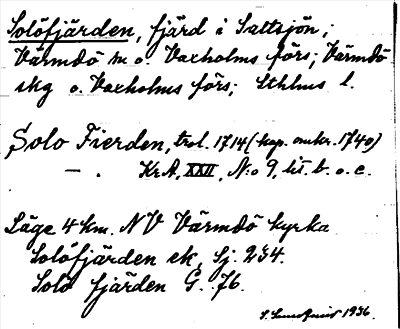 Solöfjärden, fjärd i Saltsjön;
Värmdö sn o. Vaxholms förs; Värmdö
skg o. Vaxholms förs; Sthlms l.
Solo Fierden, trol. 1714 (kop. omkr. 1740)
— . KrA, XXII, N:o 9, lit. b. o. c.
Läge 4 km. NV Värmdö kyrka
Solöfjärden ek, Sj. 234.
Solö fjärden G. 76.
1936.